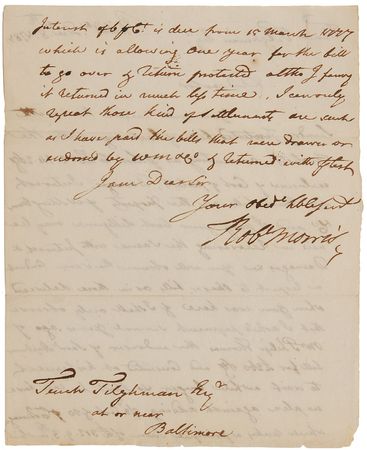 Interest of 6 p Ct. is due from 15 March 1777
which is allowing One year for the bill
to go over & return protested altho I fancy
it returned in much less time. I can only
repeat those kind of settlements are such
as I have paid the bills that were drawn or
endorsed by & returned with protest
I am Dear Sir
Your Obedt. hble Servt
Robt Morris
Tench Tilghman Esqr.
at or near
Baltimore